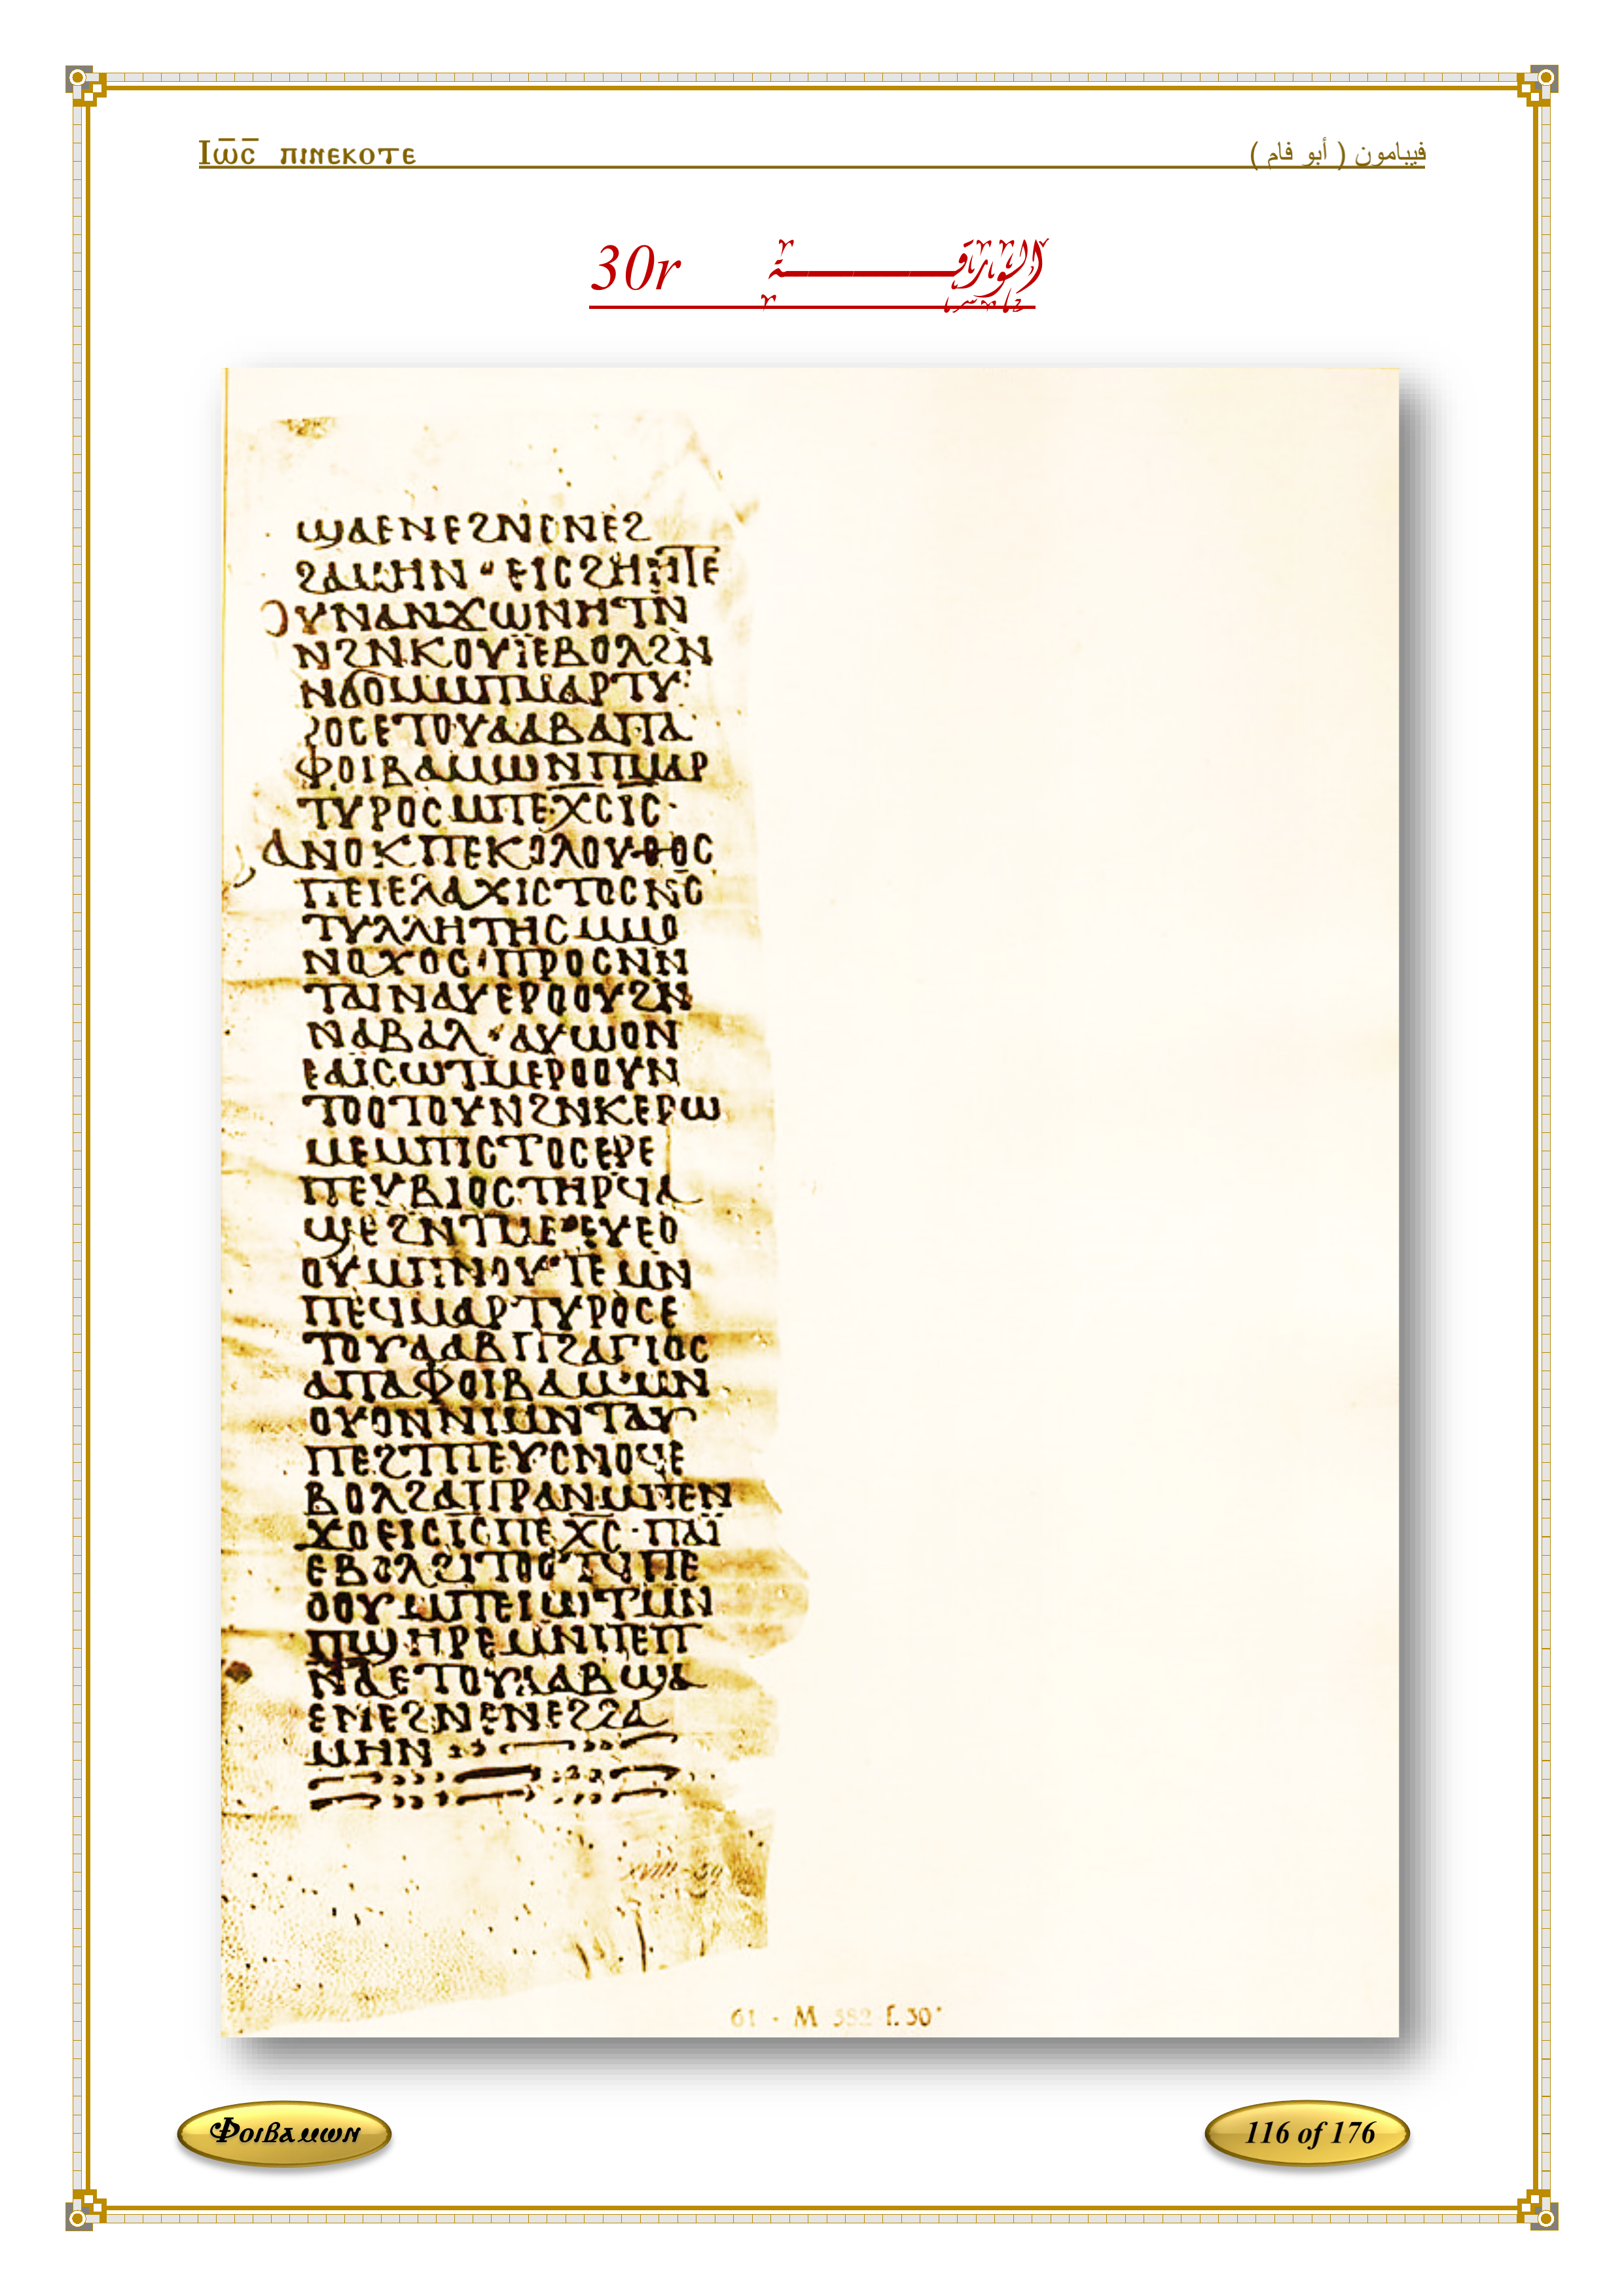 Ⲓⲱ̅ⲥ̅ ⲡⲓⲛⲉⲕⲟⲧⲉ
فيبامون ( أبو فام )
الورقة 30r
ϣⲁⲉⲛⲉϩⲛⲉⲛⲉϩ
ϩⲁⲙⲏⲛ · ⲉⲓⲥϩⲏⲏⲧⲉ
ⲟⲩⲛⲁⲛϫⲱⲛⲏⲧⲛ̅
ⲛϩⲛⲕⲟⲩⲓ̈ⲉⲃⲟⲗϩⲛ
ⲛϭⲟⲙⲙⲡⲙⲁⲣⲧⲩ
ⲣⲟⲥⲉⲧⲟⲩⲁⲁⲃⲁⲡⲁ
ⲫⲟⲓⲃⲁⲙⲱⲛⲡⲙⲁⲣ
ⲧⲩⲣⲟⲥⲙⲡⲉⲭ̅ⲥ̅ⲓ̅ⲥ̅ ·
ⲁⲛⲟⲕⲡⲉⲕⲟⲗⲟⲩⲑⲟⲥ
ⲡⲉⲓⲉⲗⲁⲭⲓⲥⲧⲟⲥⲛⲥ̅
ⲧⲩⲗⲗⲏⲧⲏⲥⲙⲙⲟ
ⲛⲟⲭⲟⲥ · ⲡⲣⲟⲥⲛⲛ
ⲧⲁⲓⲛⲁⲩⲉⲣⲟⲟⲩϩⲛ
ⲛⲁⲃⲁⲗ · ⲁⲩⲱⲟⲛ
ⲉⲁⲓⲥⲱⲧⲙⲉⲣⲟⲟⲩⲛ
ⲧⲟⲟⲧⲟⲩⲛϩⲛⲕⲉⲣⲱ
ⲙⲉⲙⲡⲓⲥⲧⲟⲥⲉⲣⲉ
ⲡⲉⲩⲃⲓⲟⲥⲧⲏⲣϥⲁ
ϣⲉϩⲛⲧⲙⲉ · ⲉⲩⲉⲟ
ⲟⲩⲙⲡⲛⲟⲩⲧⲉⲙⲛ
ⲡⲉϥⲙⲁⲣⲧⲩⲣⲟⲥⲉ
ⲧⲟⲩⲁⲁⲃⲡϩⲁⲅⲓⲟⲥ
ⲁⲡⲁⲫⲟⲓⲃⲁⲙⲱⲛ
ⲟⲩⲟⲛⲛⲓⲙⲛⲧⲁⲩ
ⲡⲉϩⲧⲡⲉⲩⲥⲛⲟϥⲉ
ⲃⲟⲗϩⲁⲡⲣⲁⲛⲙⲡⲉⲛ
ϫⲟⲉⲓⲥⲓ̅ⲥ̅ⲡⲉⲭ̅ⲥ̅ · ⲡⲁⲓ̈
ⲉⲃⲟⲗϩⲓⲧⲟⲟⲧϥⲡⲉ
ⲟⲟⲩⲙⲡⲉⲓⲱⲧⲙⲛ
ⲡϣⲏⲣⲉⲙⲛⲡⲉⲡ
ⲛⲁⲉⲧⲟⲩⲁⲁⲃϣⲁ
ⲉⲛⲉϩⲛⲉⲛⲉϩϩⲁ
ⲙⲏⲛ
XVIII-59
61 - M 582 f. 30ʳ
Ⲫⲟⲓⲃⲁⲙⲱⲛ
116 of 176